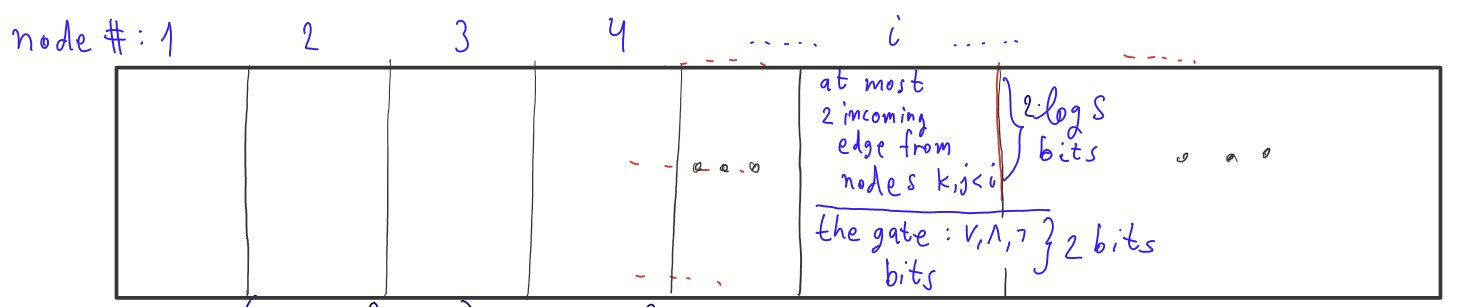 node #: 1 2 3 4 ..... i .....
at most
2 incoming
edge from
nodes k,j<i
2·log S
bits
the gate : ∨,∧,¬
bits
2 bits